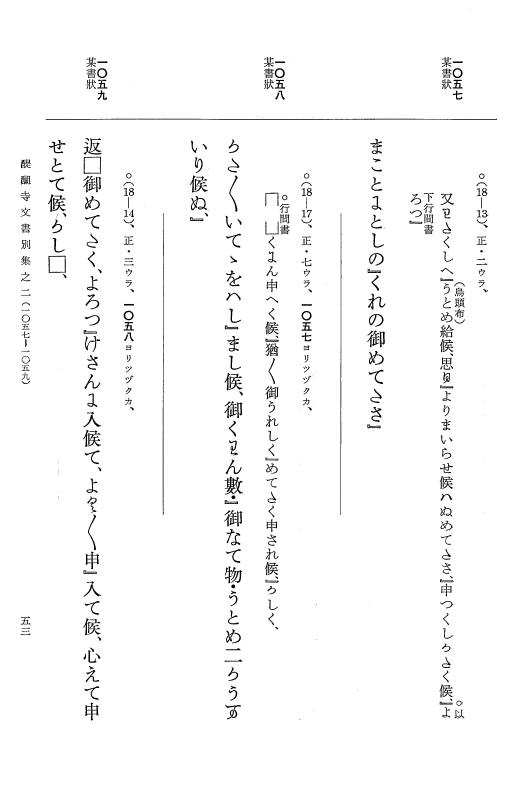 一〇五七
某書狀
○(18―13)、正・二ウラ、
又𛀙さくしへ』うとめ給候、思𛀙』よりまいらせ候ハぬめてさ、』申つくし𛀙さく候、』よ ○以
(烏頭布)
下行間書
ろつ』
まことにとしの』くれの御めてさ』
一〇五八
某書狀
○(18―17)、正・七ウラ、一〇五七ヨリツヅクカ、
○行間書
□ □くはん申へく候、』猶〱御うれしく』めてく申され候、』うしく、
うさ〱いてゝをハし』まし候、御くん數・』御なて物・うとめ二うう
いり候ぬ、
一〇五九
某書狀
○(18―14)、正・三ウラ、一〇五八ヨリツヅクカ、
返□御めてく、よろつ』けさんに入候て、よ〱申』入て候、心えて申
せとて候、うし□、
醍醐寺文書別集之二(一〇五七―一〇五九)
五三